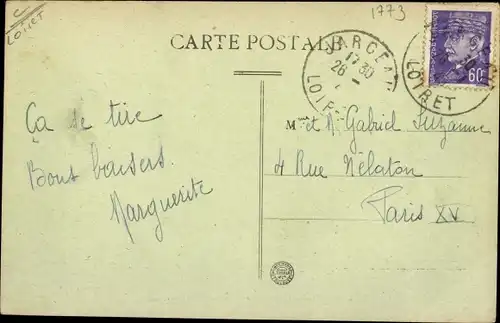 Loiret
1773
CARTE POSTALE
JARGEAU
17 30
26
LOIRET
60
Ça se tire
Bons baisers
Marguerite
M et M Gabriel Suzanne
4 Rue Nelaton
Paris XV